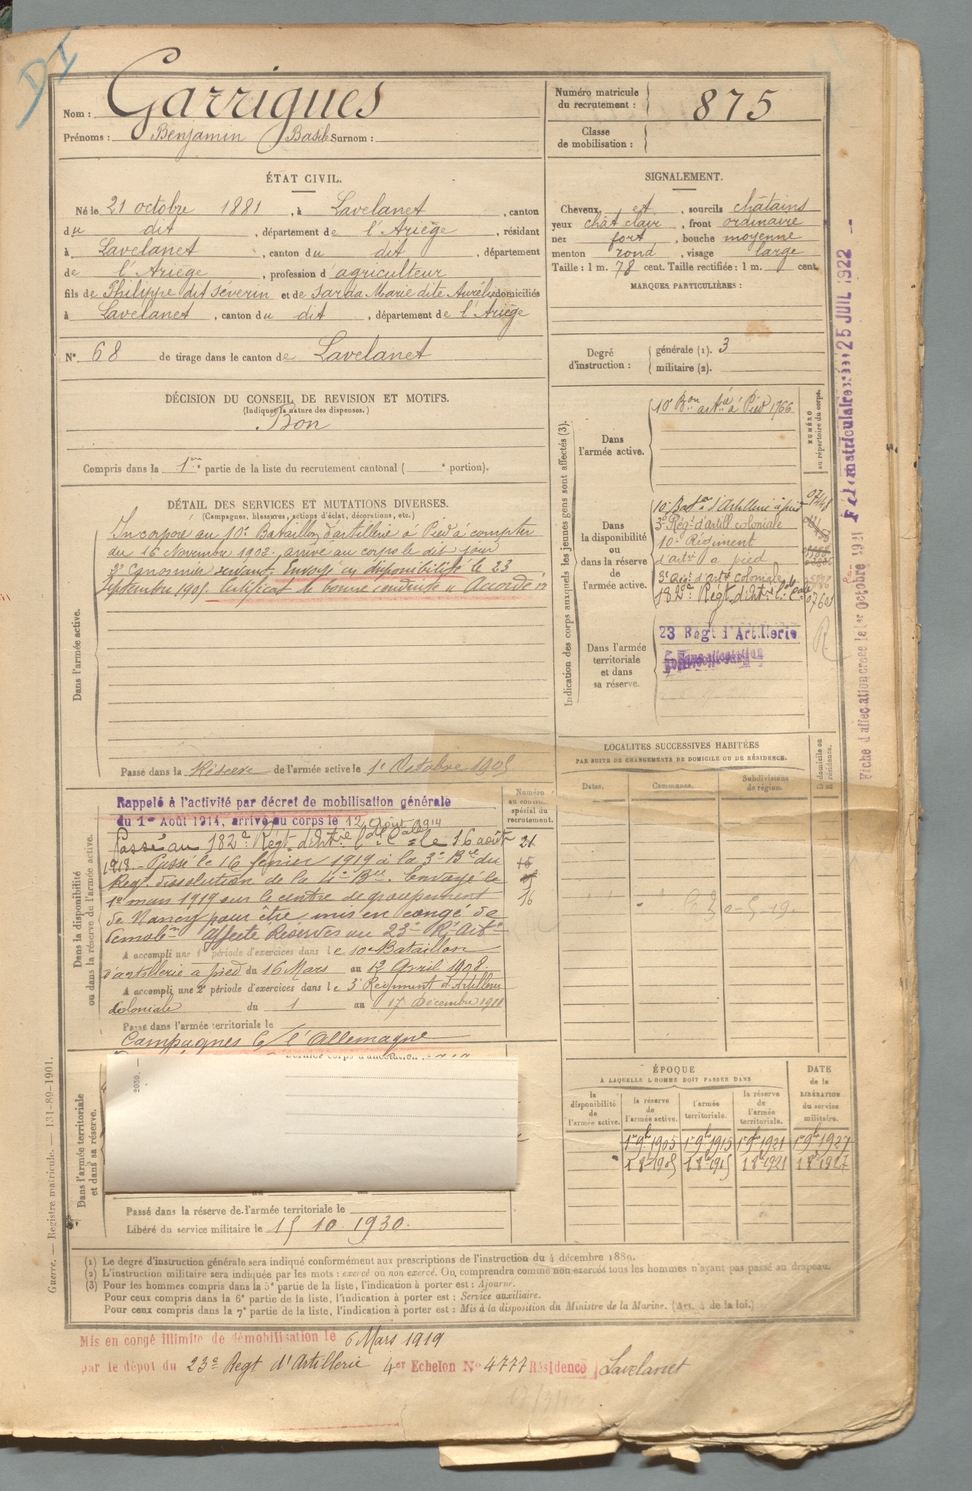 DI
Nom : Garrigues
Prénoms : Benjamin Basile Surnom :
Numéro matricule du recrutement : 875
Classe de mobilisation :
ÉTAT CIVIL.
Né le 21 octobre 1881, à Lavelanet, canton
du dit, département de l'Ariège, résidant
à Lavelanet, canton du dit, département
de l'Ariège, profession d'agriculteur
fils de Philippe dit Séverin et de Sarda Marie dite Aurélie domiciliés
à Lavelanet, canton du dit, département de l'Ariège
N° 68 de tirage dans le canton de Lavelanet
SIGNALEMENT.
Cheveux et, sourcils châtains
yeux chât clair, front ordinaire
nez fort, bouche moyenne
menton rond, visage large
Taille : 1 m. 78 cent. Taille rectifiée : 1 m. cent.
MARQUES PARTICULIÈRES :
Degré d'instruction : générale (1). 3
militaire (2).
DÉCISION DU CONSEIL DE REVISION ET MOTIFS.
(Indiquer la nature des dispenses.)
Bon
Compris dans la 1re partie de la liste du recrutement cantonal ( portion).
DÉTAIL DES SERVICES ET MUTATIONS DIVERSES.
(Campagnes, blessures, actions d'éclat, décorations, etc.)
Dans l'armée active.
Incorporé au 10e Bataillon d'artillerie à Pied à compter
du 16 Novembre 1902, arrivé au corps le dit jour
2e Canonnier servant. Envoyé en disponibilité le 23
Septembre 1905. Certificat de bonne conduite "Accordé"
Passé dans la Réserve de l'armée active le 1er Octobre 1905
Indication des corps auxquels les jeunes gens sont affectés (3).
NUMÉRO au répertoire du corps.
Dans l'armée active.
10e Bon artie à Pied 1766
Dans la disponibilité ou dans la réserve de l'armée active.
10e Baton d'Artillerie à pied
3e Régt d'artil coloniale
10e Régiment
d'artie à pied
3e Rég. d'art. coloniale
182e Régt d'Art.
Dans l'armée territoriale et dans sa réserve.
23 Regt d'Artillerie
Fiche d'affectation créée le 1er Octobre 1921
25 JUIL 1922
LOCALITÉS SUCCESSIVES HABITÉES
PAR SUITE DE CHANGEMENTS DE DOMICILE OU DE RÉSIDENCE.
Dates.
Communes.
Subdivisions de région.
Domicile ou résidence.
Dans la disponibilité ou dans la réserve de l'armée active.
Numéro au contrôle spécial du recrutement.
21
16
Rappelé à l'activité par décret de mobilisation générale
du 1er Août 1914, arrivé au corps le 12 Août 1914
Passé au 182e Régt d'Art. le 16 août
1918. Passé le 16 février 1919 à la 3e Bie du
Régt dissolution de la Bie. Envoyé le
1er mars 1919 sur le centre de groupement
de Nancy pour être mis en congé de
démobon. Affecté Réserves au 23e Rt Art.
A accompli une 1re période d'exercices dans le 10e Bataillon
d'artillerie à pied du 16 Mars au 12 Avril 1908.
A accompli une 2e période d'exercices dans le 3e Régiment d'Artillerie
Coloniale du 1 au 17 Décembre 1911
Passé dans l'armée territoriale le
Campagnes C/ l'Allemagne
Dans l'armée territoriale et dans sa réserve.
Passé dans la réserve de l'armée territoriale le
Libéré du service militaire le 15 10 1930.
ÉPOQUE
À LAQUELLE L'HOMME DOIT PASSER DANS
la disponibilité de l'armée active.
la réserve de l'armée active.
l'armée territoriale.
la réserve de l'armée territoriale.
DATE de la LIBÉRATION du service militaire.
Guerre. — Registre matricule. — 131-89-1901.
(1) Le degré d'instruction générale sera indiqué conformément aux prescriptions de l'instruction du 4 décembre 1889.
(2) L'instruction militaire sera indiquée par les mots : exercé ou non exercé. On comprendra comme non exercés tous les hommes n'ayant pas passé au drapeau.
(3) Pour les hommes compris dans la 5e partie de la liste, l'indication à porter est : Ajourné.
Pour ceux compris dans la 6e partie de la liste, l'indication à porter est : Service auxiliaire.
Pour ceux compris dans la 7e partie de la liste, l'indication à porter est : Mis à la disposition du Ministre de la Marine. (Art. 4 de la loi.)
Mis en congé illimité de démobilisation le 6 Mars 1919
par le dépôt du 23e Regt d'Artillerie 4er Echelon No 4777 Résidence Lavelanet